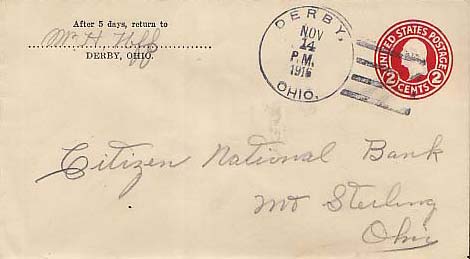 After 5 days, return to
Mr. H
DERBY, OHIO.
DERBY,
NOV
14
P.M.
1916
OHIO.
UNITED STATES POSTAGE
2 CENTS 2
Citizen National Bank
Mt Sterling
Ohio